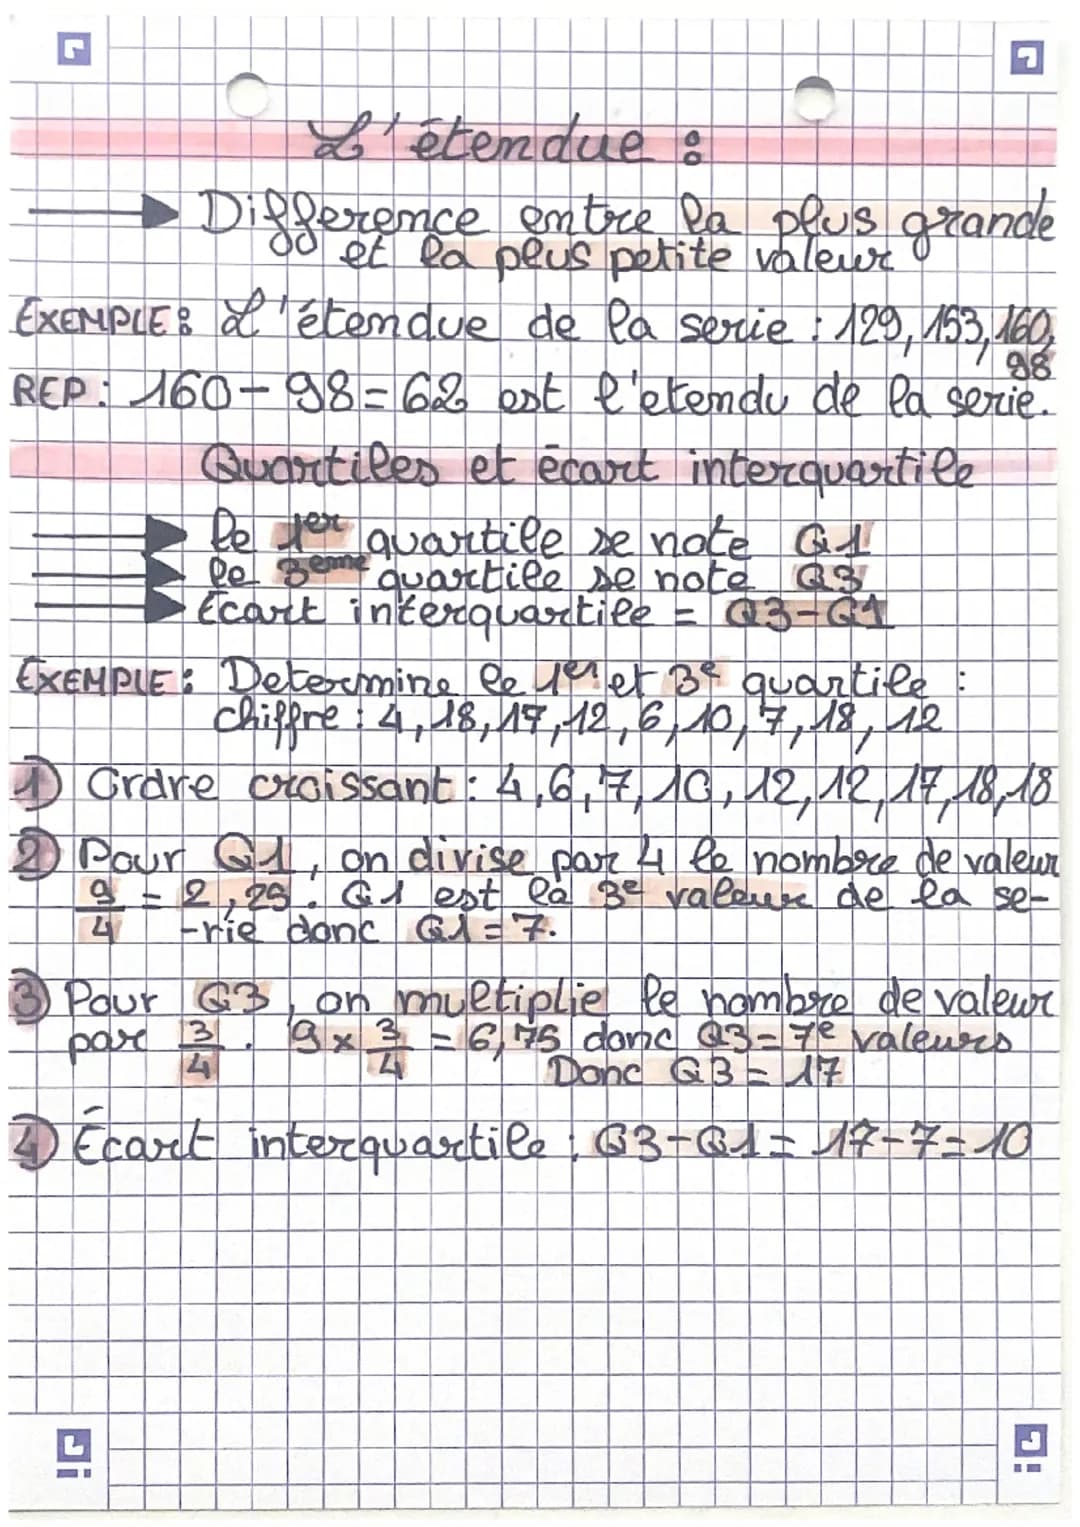 L'étendue :
Difference entre la plus grande
et la peus petite valeur
EXEMPLE : L'étendue de la serie : 129, 153, 160,
98
REP : 160 - 98 = 62 est l'etendu de la serie.
Quartiles et écart interquartile
le 1er quartile se note Q1
le 3eme quartile se note Q3
Écart interquartile = Q3-Q1
EXEMPLE : Determine le 1er et 3e quartile :
chiffre : 4, 18, 17, 12, 6, 10, 7, 18, 12
1) Ordre croissant : 4, 6, 7, 10, 12, 12, 17, 18, 18
2) Pour Q1, on divise par 4 le nombre de valeur
9/4 = 2,25. Q1 est la 3e valeur de la se-
-rie donc Q1 = 7.
3) Pour Q3, on multiplie le nombre de valeur
par 3/4. 9 x 3/4 = 6,75 donc Q3 = 7e valeurs
Donc Q3 = 17
4) Écart interquartile : Q3-Q1 = 17-7 = 10